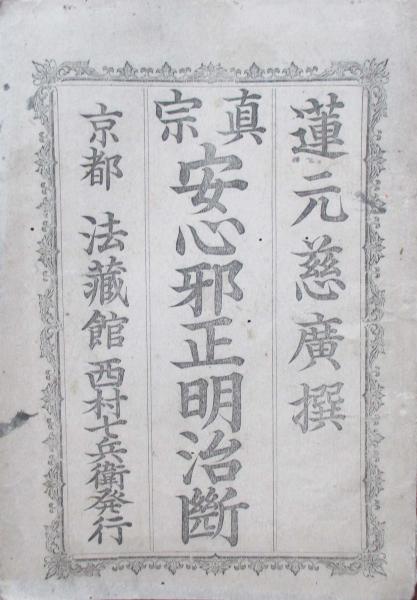 蓮元慈廣撰
真宗
安心邪正明治斷
京都 法藏館 西村七兵衛発行